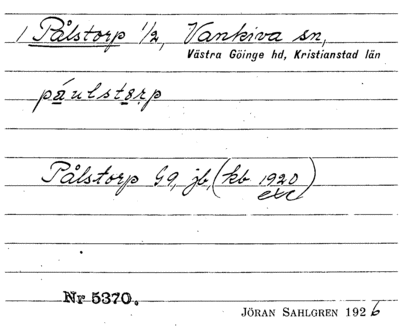 1 Pålstorp 1/2, Vankiva sn,
Västra Göinge hd, Kristianstad län
páulstọrp
Pålstorp G9, jb, (kb 1920
exc)
Nr 5370.
JÖRAN SAHLGREN 1926